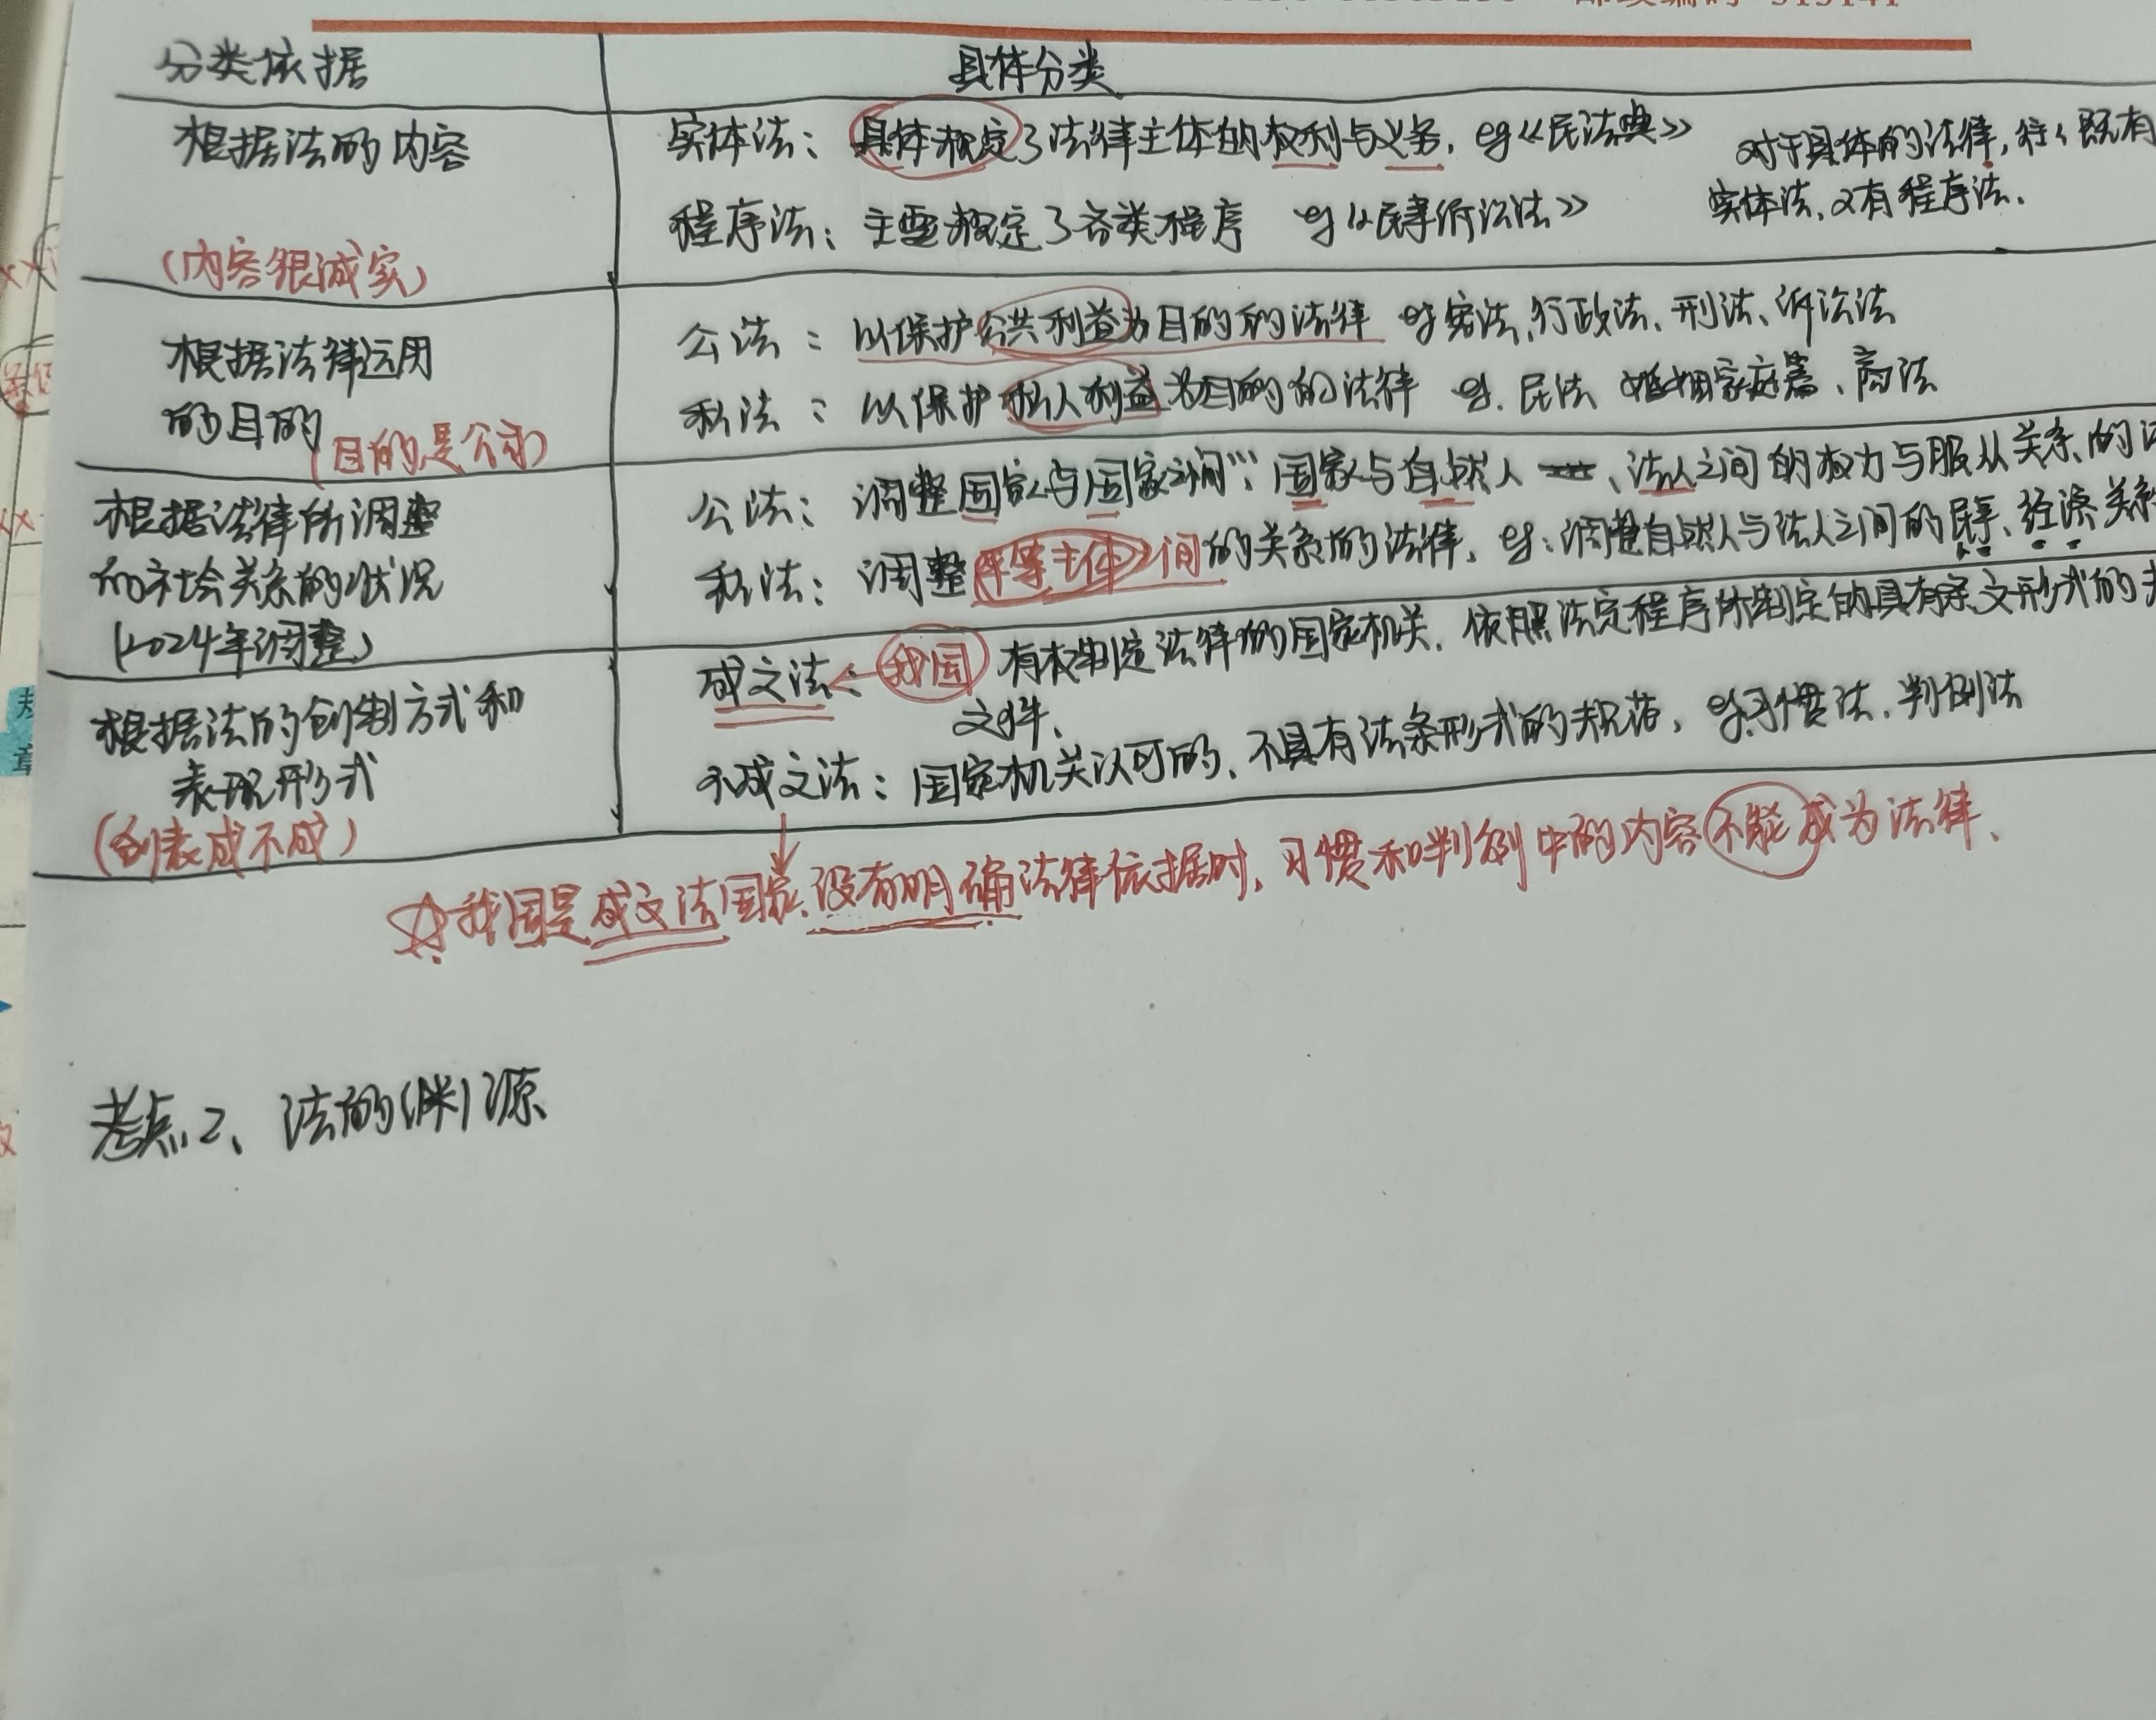 邮政编码 315141
分类依据 具体分类
根据法的内容
(内容很诚实)
实体法：具体规定了法律主体的权利与义务. eg《民法典》
程序法：主要规定了各类程序 eg《民事诉讼法》
对于具体的法律,往く既有
实体法,又有程序法.
根据法律运用
的目的
(目的是公私)
公法：以保护公共利益为目的的法律 eg宪法,行政法、刑法、诉讼法
私法：以保护私人利益为目的的法律 eg.民法 婚姻家庭篇、商法
根据法律所调整
的社会关系的状况
(2024年调整)
公法：调整国家与国家之间、国家与自然人、法人之间的权力与服从关系的
私法：调整平等主体之间的关系的法律. eg:调整自然人与法人之间的民事、经济关系
根据法的创制方式和
表现形式
(创表成不成)
成文法：←我国 有权制定法律的国家机关.依照法定程序所制定的具有条文形式的
文件.
不成文法：国家机关认可的、不具有法条形式的规范，eg习惯法.判例法
☆我国是成文法国家.没有明确法律依据时,习惯和判例中的内容不能成为法律、
考点2、法的(渊)源